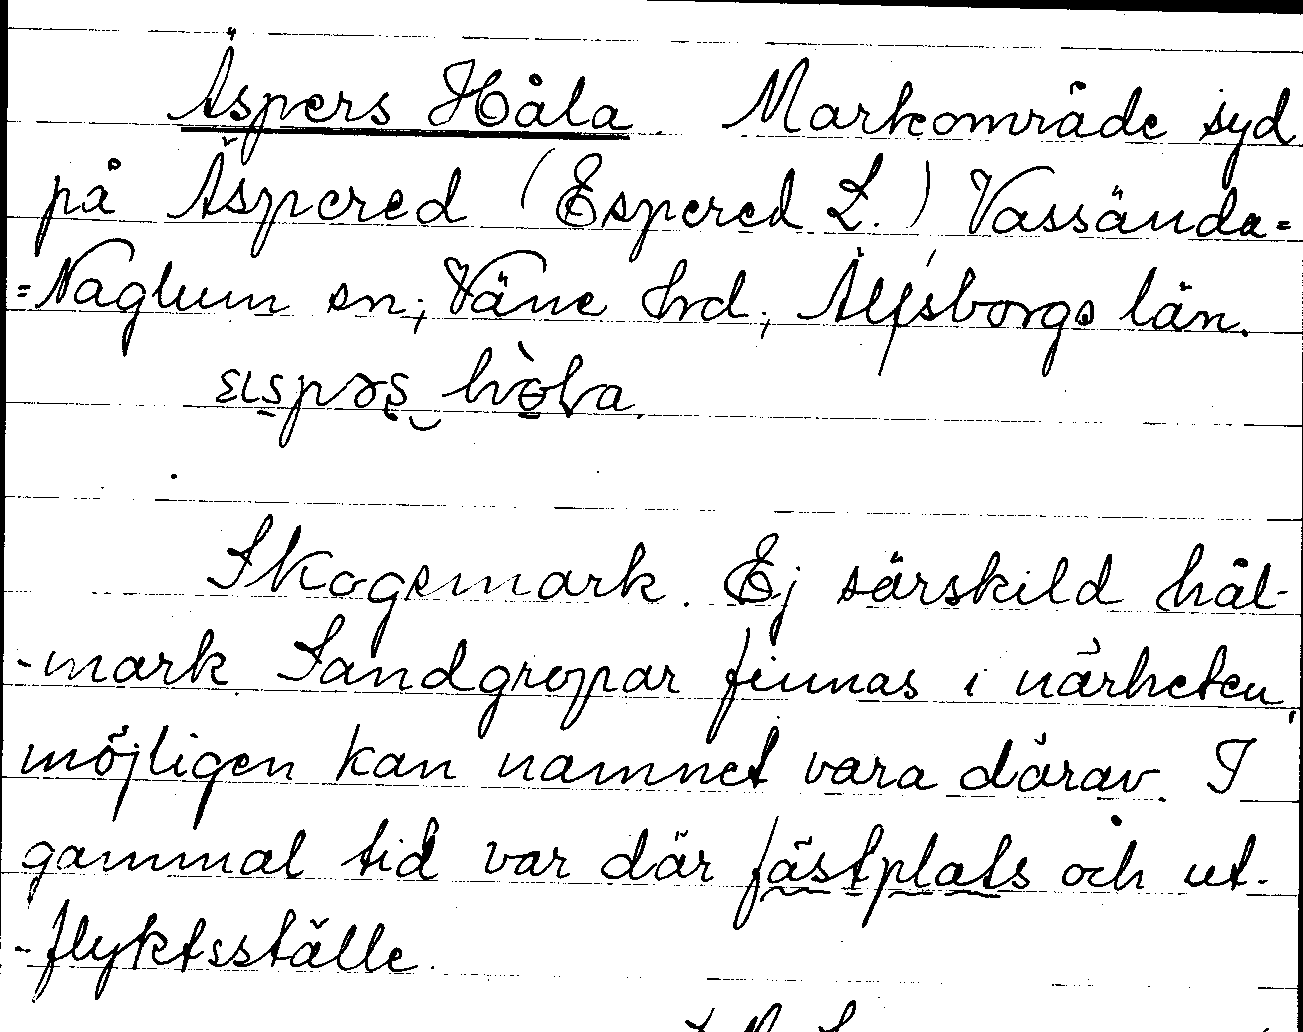 Äspers Håla. Markområde syd
på Äspered (Espered L.) Vassända=
=Naglum sn, Väne hrd, Älfsborgs län.
Skogsmark. Ej särskild hål-
-mark. Sandgropar finnas i närheten,
möjligen kan namnet vara därav. I
gammal tid var där fästplats och ut-
-flyktsställe.